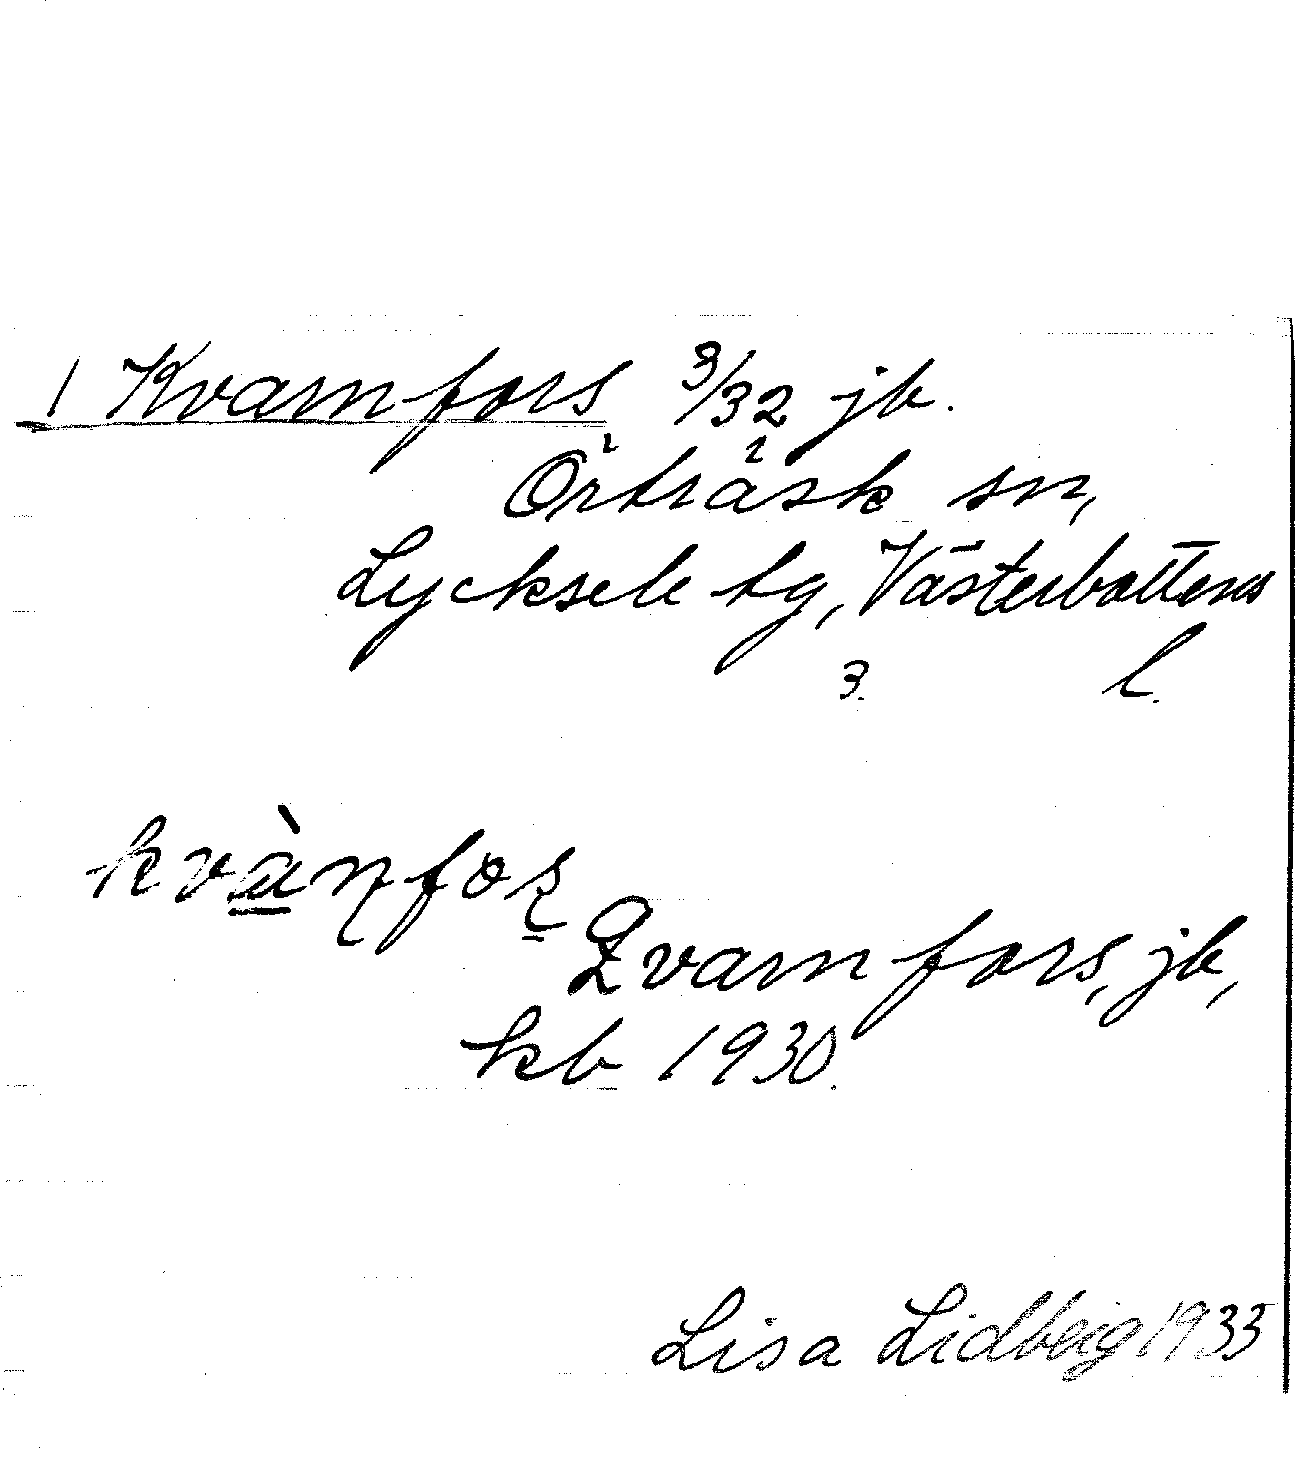 1 Kvarnfors 3/32 jb.
Örträsk sn,
Lycksele tg, Västerbottens
3. l.
kvànfoș
Qvarnfors, jb,
kb 1930.
Lisa Lidberg 1933